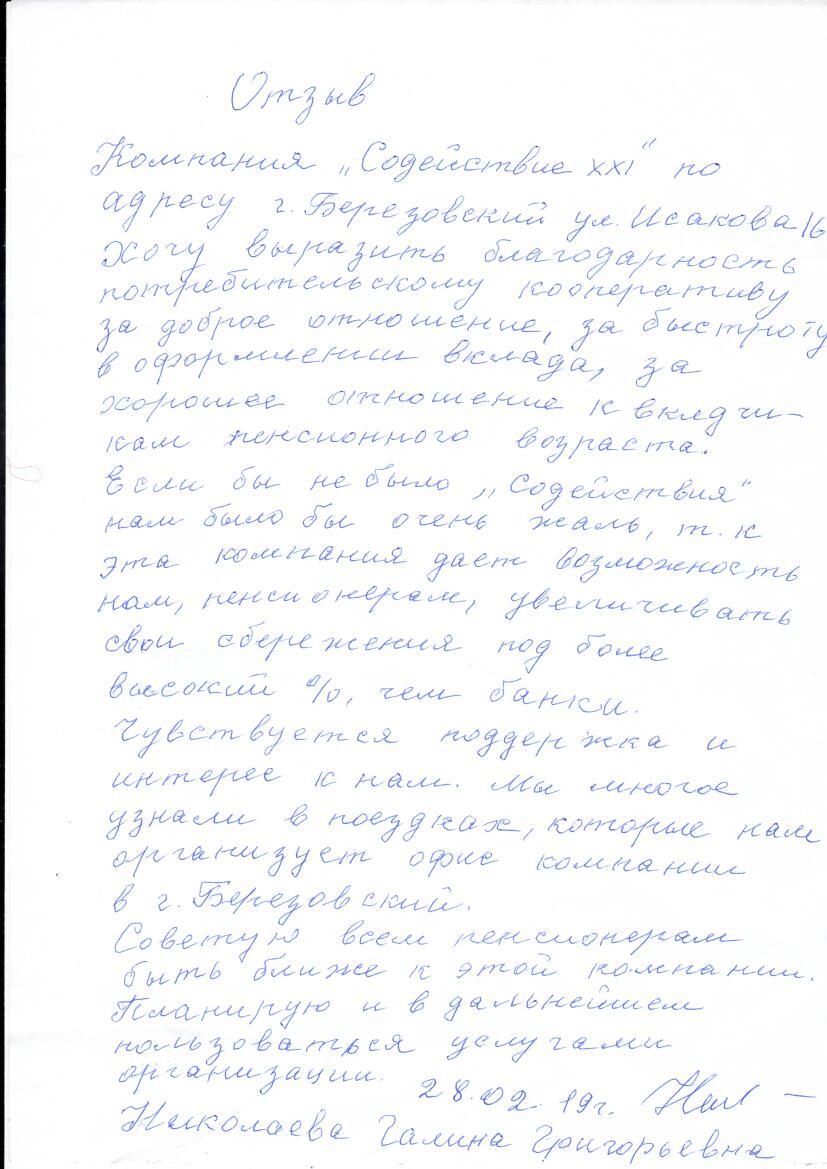 Отзыв
Компания „Содействие XXI" по
адресу г. Березовский ул. Исакова 16
хочу выразить благодарность
потребительскому кооперативу
за доброе отношение, за быстроту
в оформлении вклада, за
хорошее отношение к вклдчи-
кам пенсионного возраста.
Если бы не было „Содействия"
нам было бы очень жаль, т. к
эта компания дает возможность
нам, пенсионерам, увеличивать
свои сбережения под более
высокий %, чем банки.
Чувствуется поддержка и
интерес к нам. Мы многое
узнали в поездках, которые нам
организует офис компании
в г. Березовский.
Советую всем пенсионерам
быть ближе к этой компании.
Планирую и в дальнейшем
пользоваться услугами
организации. 28.02.19г.
Николаева Галина Григорьевна